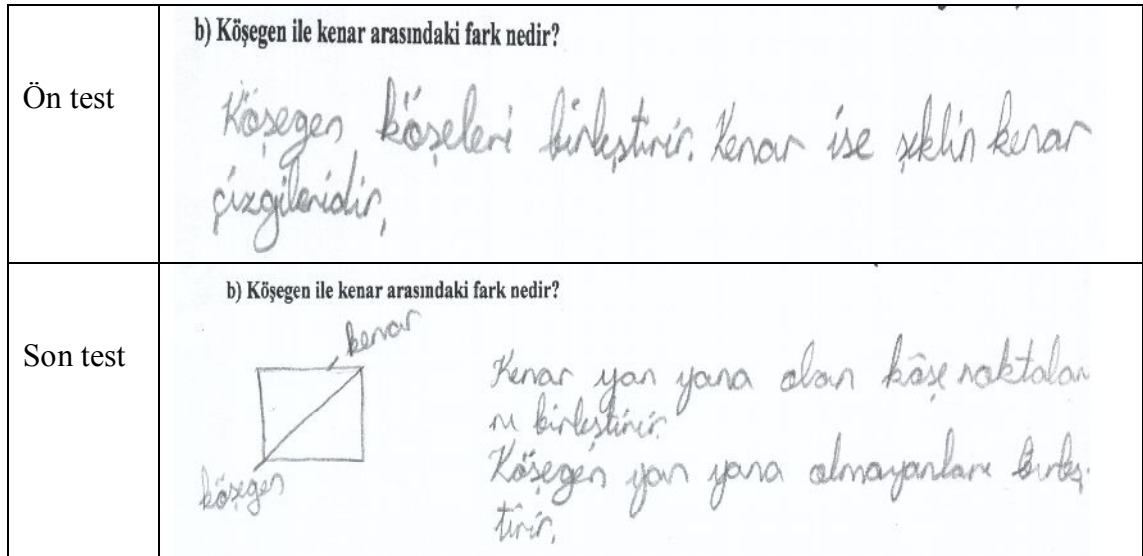 Ön test
b) Köşegen ile kenar arasındaki fark nedir?
Köşegen köşeleri birleştirir. Kenar ise şeklin kenar
çizgileridir,
Son test
b) Köşegen ile kenar arasındaki fark nedir?
kenar
köşegen
Kenar yan yana olan köşe noktaları
nı birleştirir.
Köşegen yan yana olmayanları birleş-
tirir.